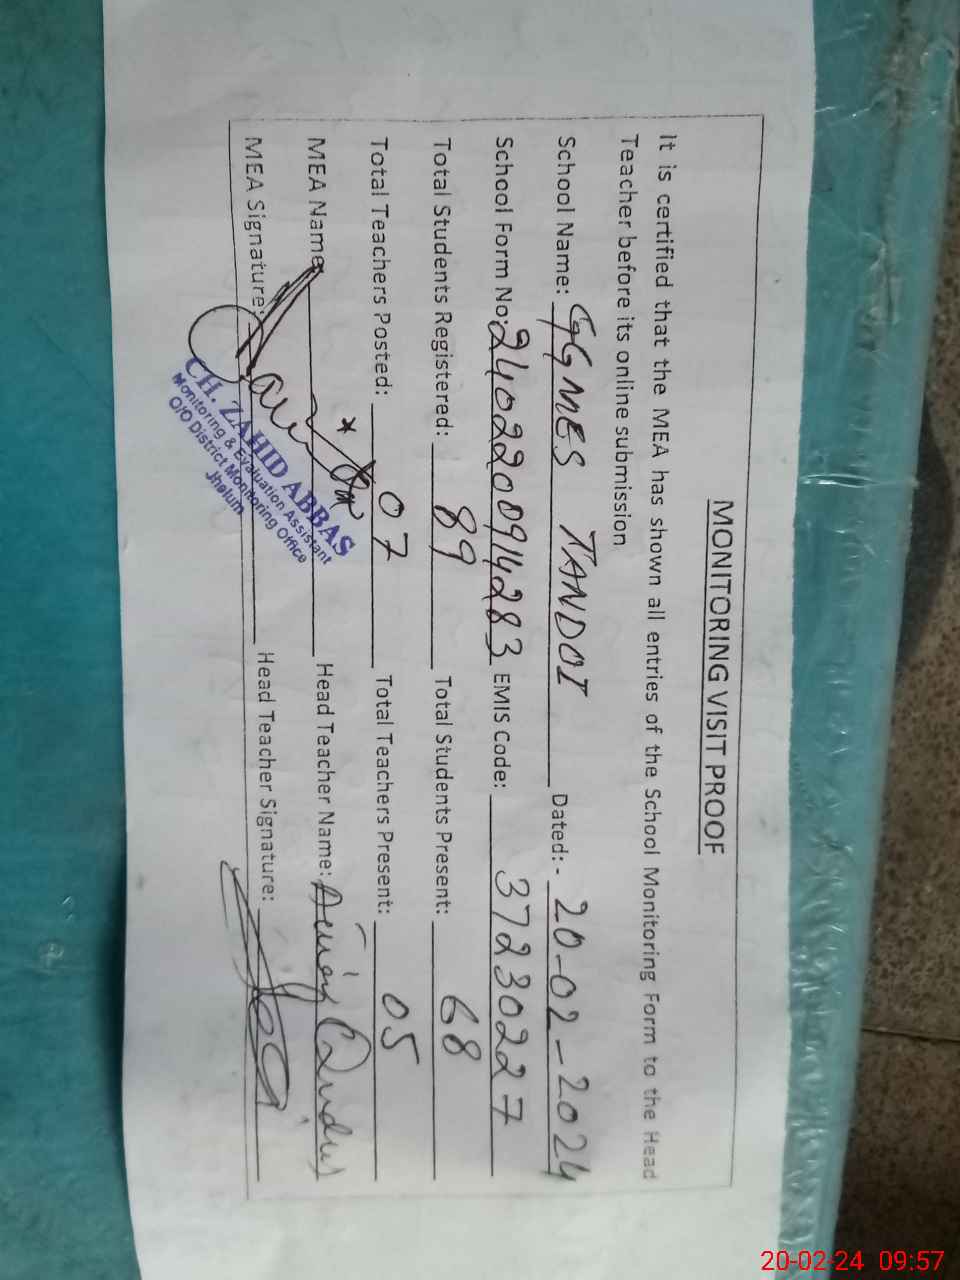 MONITORING VISIT PROOF
It is certified that the MEA has shown all entries of the School Monitoring Form to the Head
Teacher before its online submission
School Name: GGMES TANDOI Dated:- 20-02-2024
School Form No: 2402200914283 EMIS Code: 37230227
Total Students Registered: 89 Total Students Present: 68
Total Teachers Posted: 07 Total Teachers Present: 05
MEA Name Head Teacher Name:
MEA Signature: Head Teacher Signature:
CH. ZAHID ABBAS
Monitoring & Evaluation Assistant
O/O District Monitoring Office
Jhelum
20-02-24 09:57